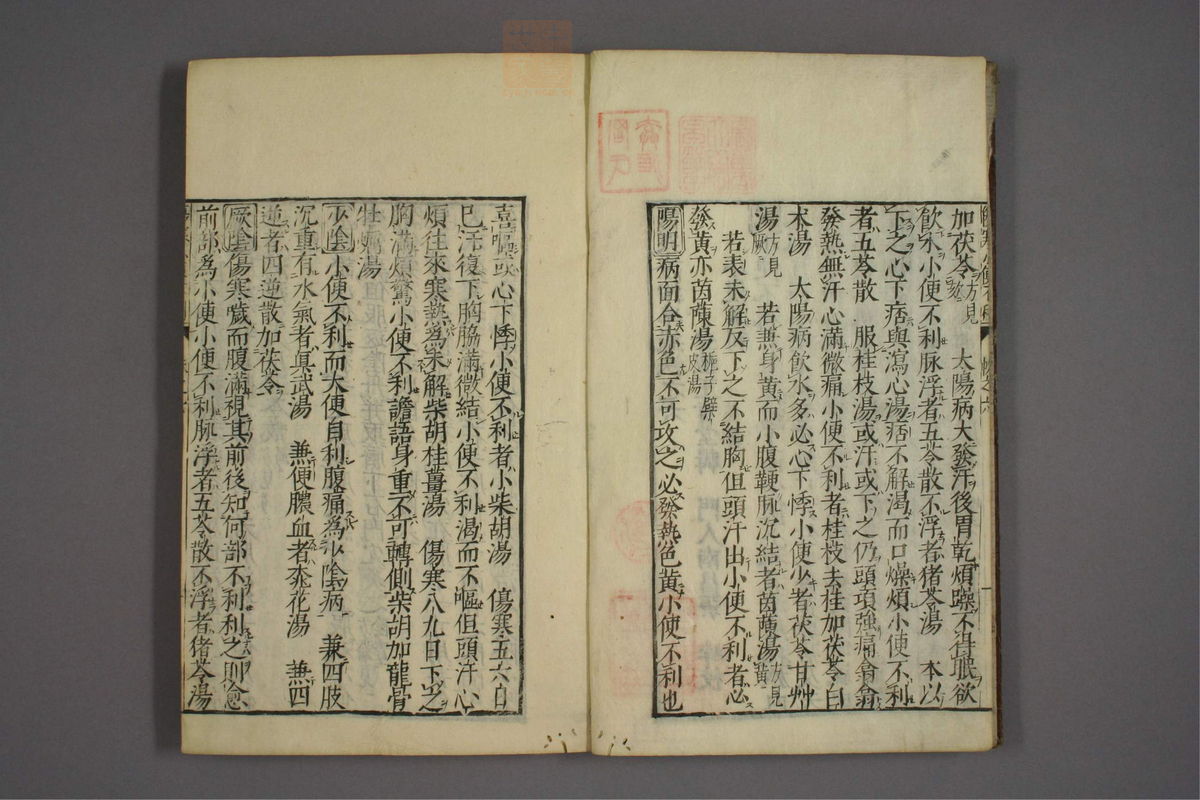 加茯苓方見發 太陽病大發汗後胃乾煩躁不得眠欲
飲水小便不利脉浮者五苓散不浮者猪苓湯 本以
下之心下痞與瀉心湯痞不解渴而口燥煩小便不利
者五苓散 服桂枝湯或汗或下之仍頭項強痛翕翕
發熱無汗心滿微痛小便不利者桂枝去桂加茯苓白
术湯 太陽病飲水多必心下悸小便少者茯苓甘艸
湯方見厥 若熱身黃而小腹鞕脉沉結者茵蔯湯方見黃
若表未解反下之不結胸但頭汗出小便不利者必
發黃亦茵蔯湯梔子蘗皮湯
陽明病面合赤色不可攻之必發熱色黃小便不利也
喜嘔或心下悸小便不利者小柴胡湯 傷寒五六日
已汗復下胸脇滿微結小便不利渴而不嘔但頭汗心
煩往來寒熱為未解柴胡桂薑湯 傷寒八九日下之
胸滿煩驚小便不利譫語身重不可轉側柴胡加龍骨
牡蠣湯
少陰小便不利而大便自利腹痛為少陰病 兼四肢
沉重有水氣者眞武湯 兼便膿血者桃花湯 兼四
逆者四逆散加茯苓
厥陰傷寒噦而腹滿視其前後知何部不利利之則愈
前部為小便小便不利脉浮者五苓散不浮者猪苓湯